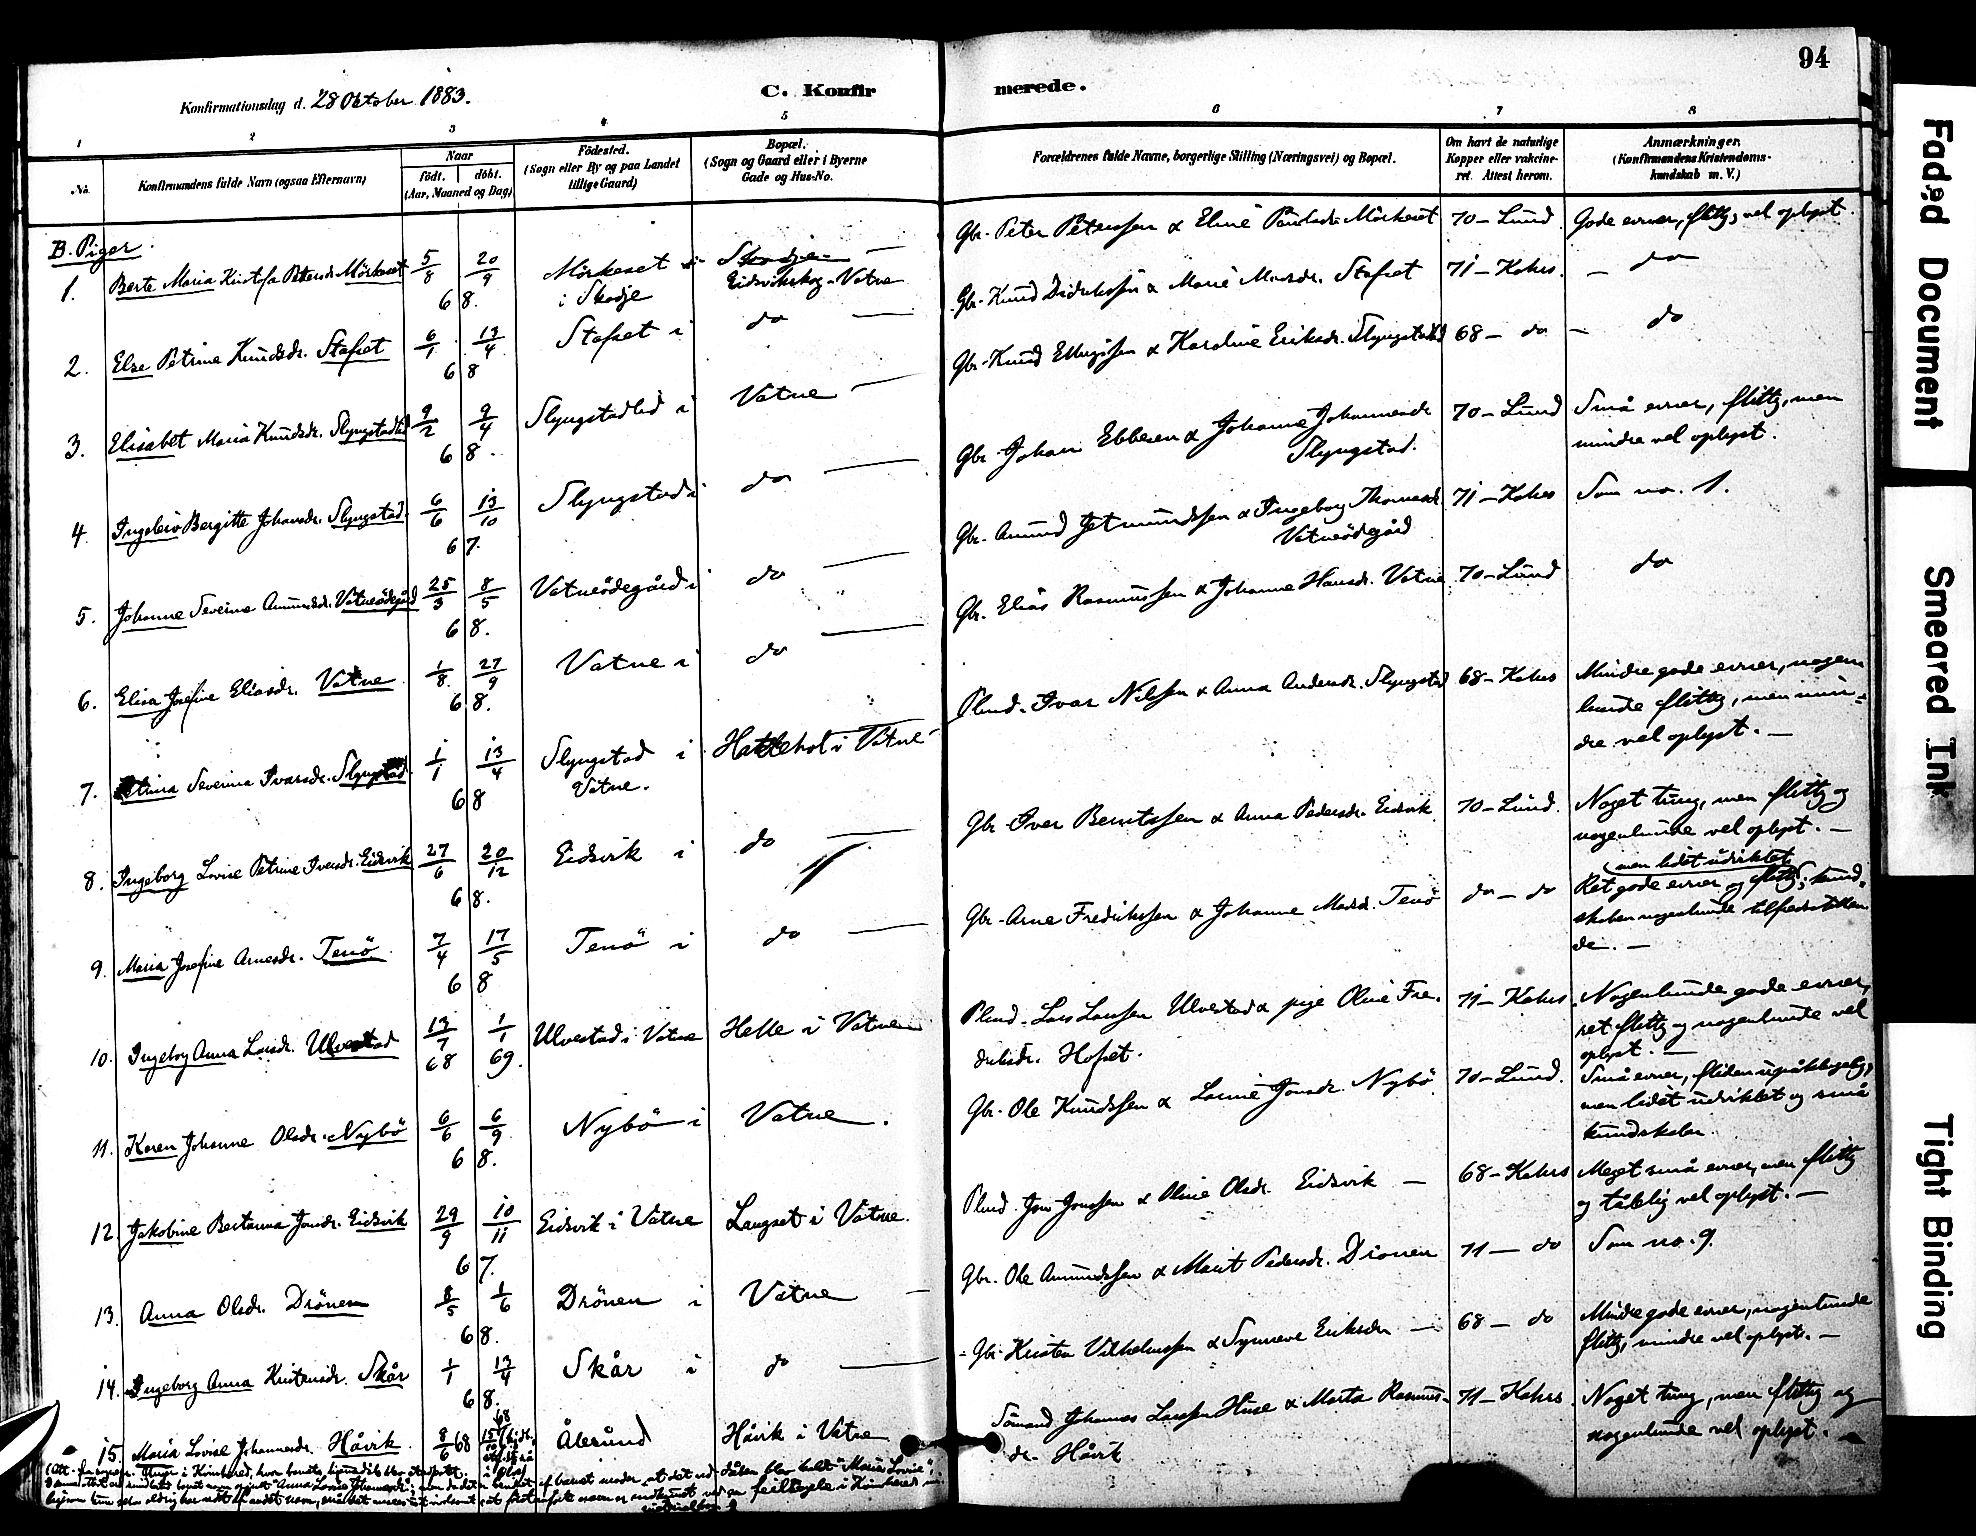 94
Konfirmationsdag d. 28 Oktober 1883.
C. Konfir
merede.
1 2 3 4 5 6 7 8
No.
Konfirmandens fulde Navn (ogsaa Efternavn)
Naar
födt. döbt.
(Aar, Maaned og Dag)
Födested.
(Sogn eller By og paa Landet
tillige Gaard)
Bopæl.
(Sogn og Gaard eller i Byerne
Gade og Hus-No.
Forældrenes fulde Navne, borgerlige Stilling (Næringsvei) og Bopæl.
Om havt de naturlige
Kopper eller vakcine-
ret. Attest herom.
Anmærkninger.
(Konfirmandens Kristendoms-
kundskab m. V.)
B. Piger.
1. Berte Maria Kristofa Petersdr. Mörkeset 5/8 20/9 68. Mörkeset
i Skodje
Skodje
Eidsvikskog - Vatne
Gbr. Peter Peterssen & Eline Paulsdr. Mörkeset 70 - Lund. Gode evner, flittig, vel oplyst.
2. Else Petrine Knudsdr. Stafset 6/1 13/4 68 Stafset i do
Gbr. Knud Didrikssen & Marie Monsdr. Stafset 71 - Kahrs. do
3. Elisabet Maria Knudsdr. Slyngstadlid 9/2 9/4 68. Slyngstadlid i Vatne
Gbr. Knud Ellingssen & Karoline Eriksdr. Slyngstadlid 68 - do - do
4. Ingeleiv Bergitte Johansdr. Slyngstad. 6/6 13/10 67. Slyngstad i do
Gbr. Johan Ebbesen & Johanne Johannesdr.
Slyngstad.
70 - Lund Små evner, flittig, men
mindre vel oplyst.
5. Johanne Severine Amundsdr. Vatneödegård 25/3 8/5 68. Vatneödegård i do
Gbr. Amund Jetmundssen & Ingeborg Thomasdr.
Vatneödegård
71 - Kahrs Som no. 1.
6. Elisa Josefine Eliasdr. Vatne 1/8 27/9 68. Vatne i do
Gbr. Elias Rasmussen & Johanne Hansdr. Vatne 70 - Lund do
7. Severina Ivarsdr. Slyngstad 1/1 13/4 68 Slyngstad i
Vatne.
Hatlehol i Vatne
Plmd. Ivar Nilssen & Anna Andersdr. Slyngstad 68 - Kahrs Mindre gode evner, nogen-
lunde flittig, men min-
dre vel oplyst. -
8. Ingeborg Lovise Petrine Iversdr. Eidsvik 27/6 20/12 68. Eidsvik i do
Gbr. Iver Berntssen & Anna Pedersdr. Eidsvik 70 - Lund. Noget tung, men flittig og
nogenlunde vel oplyst. -
9. Maria Josefine Arnesdr. Tenö 7/4 17/5 68 Tenö i do
Gbr. Arne Fredrikssen & Johanne Madsdr. Tenö do - do
(men lidet udviklet
Ret gode evner og flittig; kund-
skaber nogenlunde tilfredsstillen-
de. -
10. Ingeborg Anna Larsdr. Ulvestad 17/7 68 1/1 69. Ulvestad i Vatne Helle i Vatne
Plmd. Lars Larssen Ulvestad & pige Oline Fre-
driksdr. Hofset.
71 - Kahrs Nogenlunde gode evner,
ret flittig og nogenlunde vel
oplyst. -
11. Karen Johanne Olsdr. Nybö 6/6 6/9 68. Nybö i Vatne.
Gbr. Ole Knudssen & Lovise Jonsdr. Nybö 70 - Lund. Små evner, fliden upåklagelig,
men lidet udviklet og små
kundskaber.
12. Jakobine Bertanna Jonsdr. Eidsvik 29/9 10/11 67. Eidsvik i Vatne Langset i Vatne.
Plmd. Jon Jonssen & Oline Olsdr. Eidsvik - 68 - Kahrs Meget små evner, men flittig
og tålelig vel oplyst. -
13. Anna Olsdr. Drönen 8/5 1/6 68. Drönen i Vatne
Gbr. Ole Amundssen & Marit Pedersdr. Drönen 71 - do Som no. 9.
14. Ingeborg Anna Kristensdr. Skår 1/1 13/4 68. Skår i do
Gbr. Kristen Vilhelmssen & Synneve Eriksdr. - 68 - do Mindre gode evner, nogenlunde
flittig, mindre vel oplyst. -
15. Maria Lovise Johannesdr. Håvik 8/6 68 Ålesund Håvik i Vatne
Sömand Johannes Larssen Huse & Marta Rasmus-
dr. Håvik
71 - Kahrs. Noget tung, men flittig og
nogenlunde vel oplyst. -
Faded Document
Smeared Ink
Tight Binding